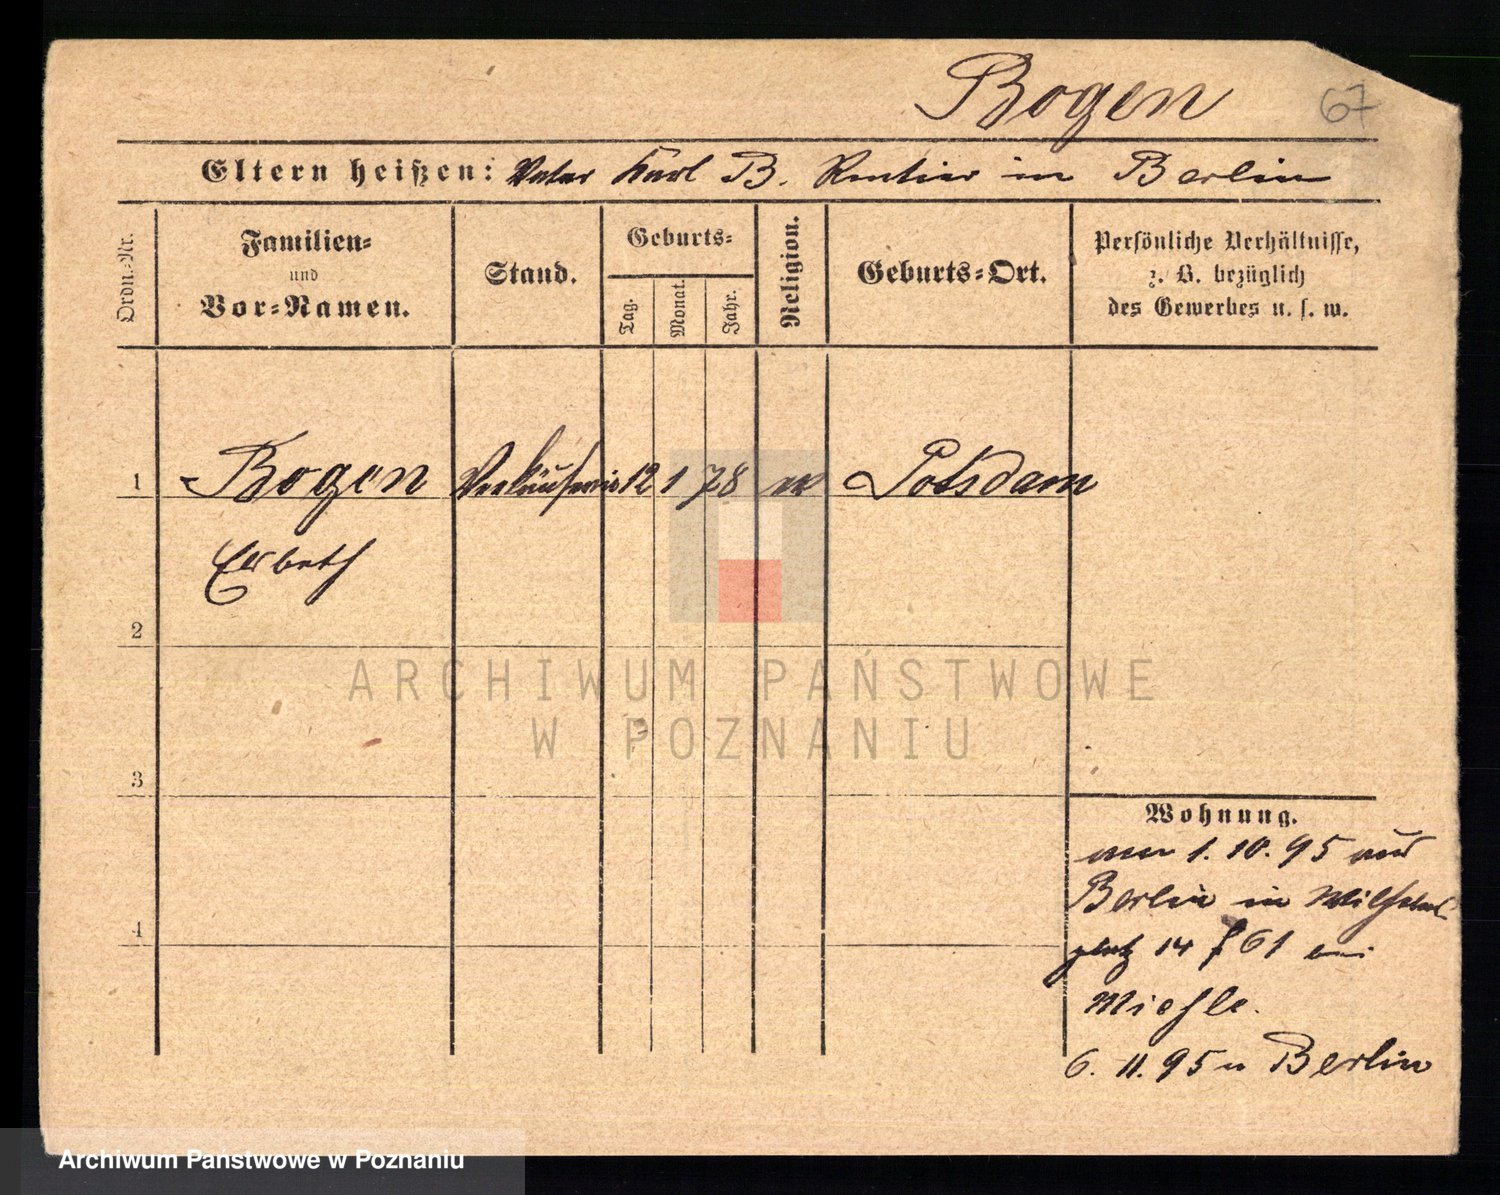 Bogen 67
Eltern heißen: Vater Karl B. Rentier in Berlin
Ordn.-Nr.
Familien-
und
Vor-Namen.
Stand.
Geburts-
Tag.
Monat.
Jahr.
Religion.
Geburts-Ort.
Persönliche Verhältnisse,
z. B. bezüglich
des Gewerbes u. s. w.
1 Bogen Verkäuferin 12 1 78 ev Potsdam
Elsbeth
2
ARCHIWUM PAŃSTWOWE
W POZNANIU
3
4
Wohnung.
1. 10. 95 aus
Berlin in Wilhelms
platz 14 61 bei
Miehle.
6. 11. 95 n Berlin
Archiwum Państwowe w Poznaniu